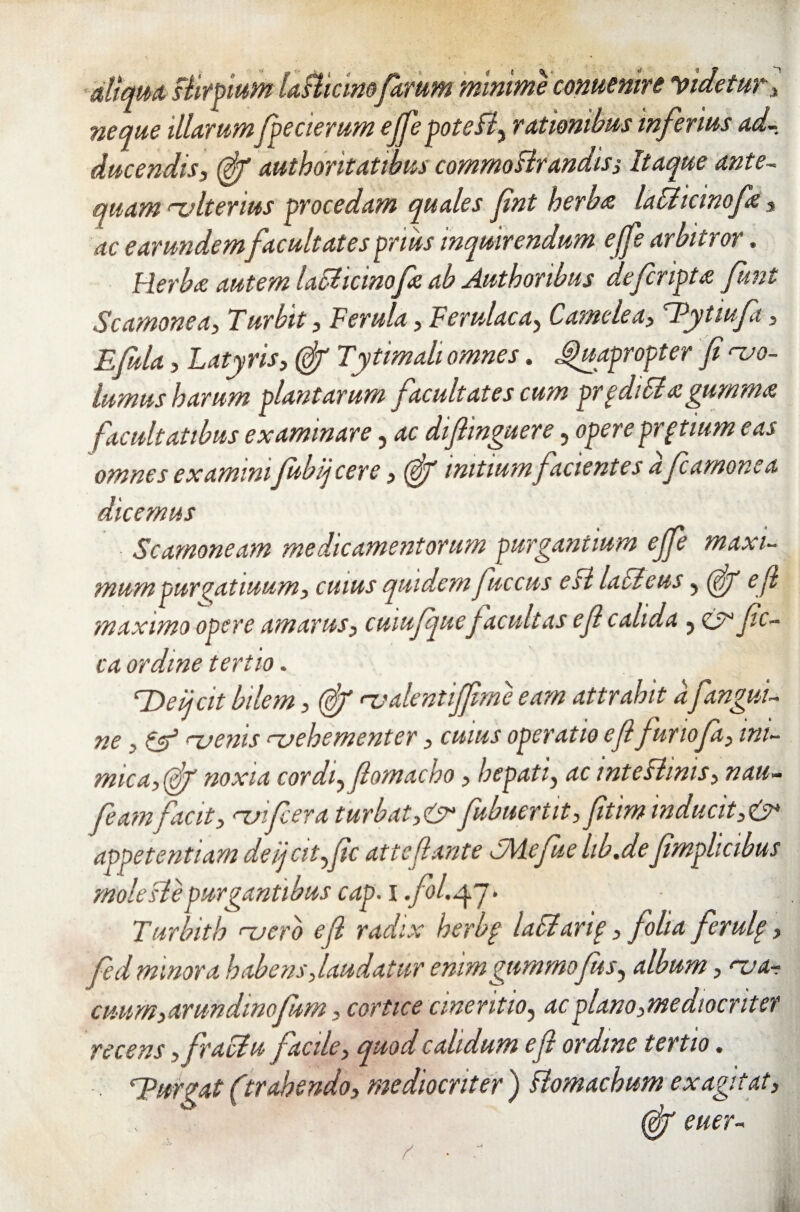 aliqua stirpium lacticinosarum minime conuenire videtur,
neque illarum specierum esse potest, rationibus inferius ad-
ducendis, & authoritatibus commostrandis; Itaque ante-
quam vlterius procedam quales sint herbæ lacticinosæ,
ac earundem facultates prius inquirendum esse arbitror.
Herbæ autem lacticinosæ ab Authoribus descriptæ sunt
Scamonea, Turbit, Ferula, Ferulaca, Camelea, Pytiusa,
Esula, Latyris, & Tytimali omnes. Quapropter si vo-
lumus harum plantarum facultates cum prędictæ gummæ
facultatibus examinare, ac distinguere, opere prętium eas
omnes examini subijcere, & initium facientes à scamonea
dicemus
Scamoneam medicamentorum purgantium esse maxi-
mum purgatiuum, cuius quidem succus est lacteus, & est
maximo opere amarus, cuiusque facultas est calida, & sic-
ca ordine tertio.
Deijcit bilem, & valentissime eam attrahit à sangui-
ne, & venis vehementer, cuius operatio est furiosa, ini-
mica, & noxia cordi, stomacho, hepati, ac intestinis, nau-
seam facit, viscera turbat, & subuertit, sitim inducit, &
appetentiam deijcit, sic attestante Mesue lib. de simplicibus
moleste purgantibus cap. 1. fol. 47.
Turbith vero est radix herbę lactarię, folia ferulę,
sed minora habens, laudatur enim gummosus, album, va-
cuum, arundinosum, cortice cineritio, ac plano, mediocriter
recens, fractu facile, quod calidum est ordine tertio.
Purgat (trahendo, mediocriter) stomachum exagitat,
& euer-